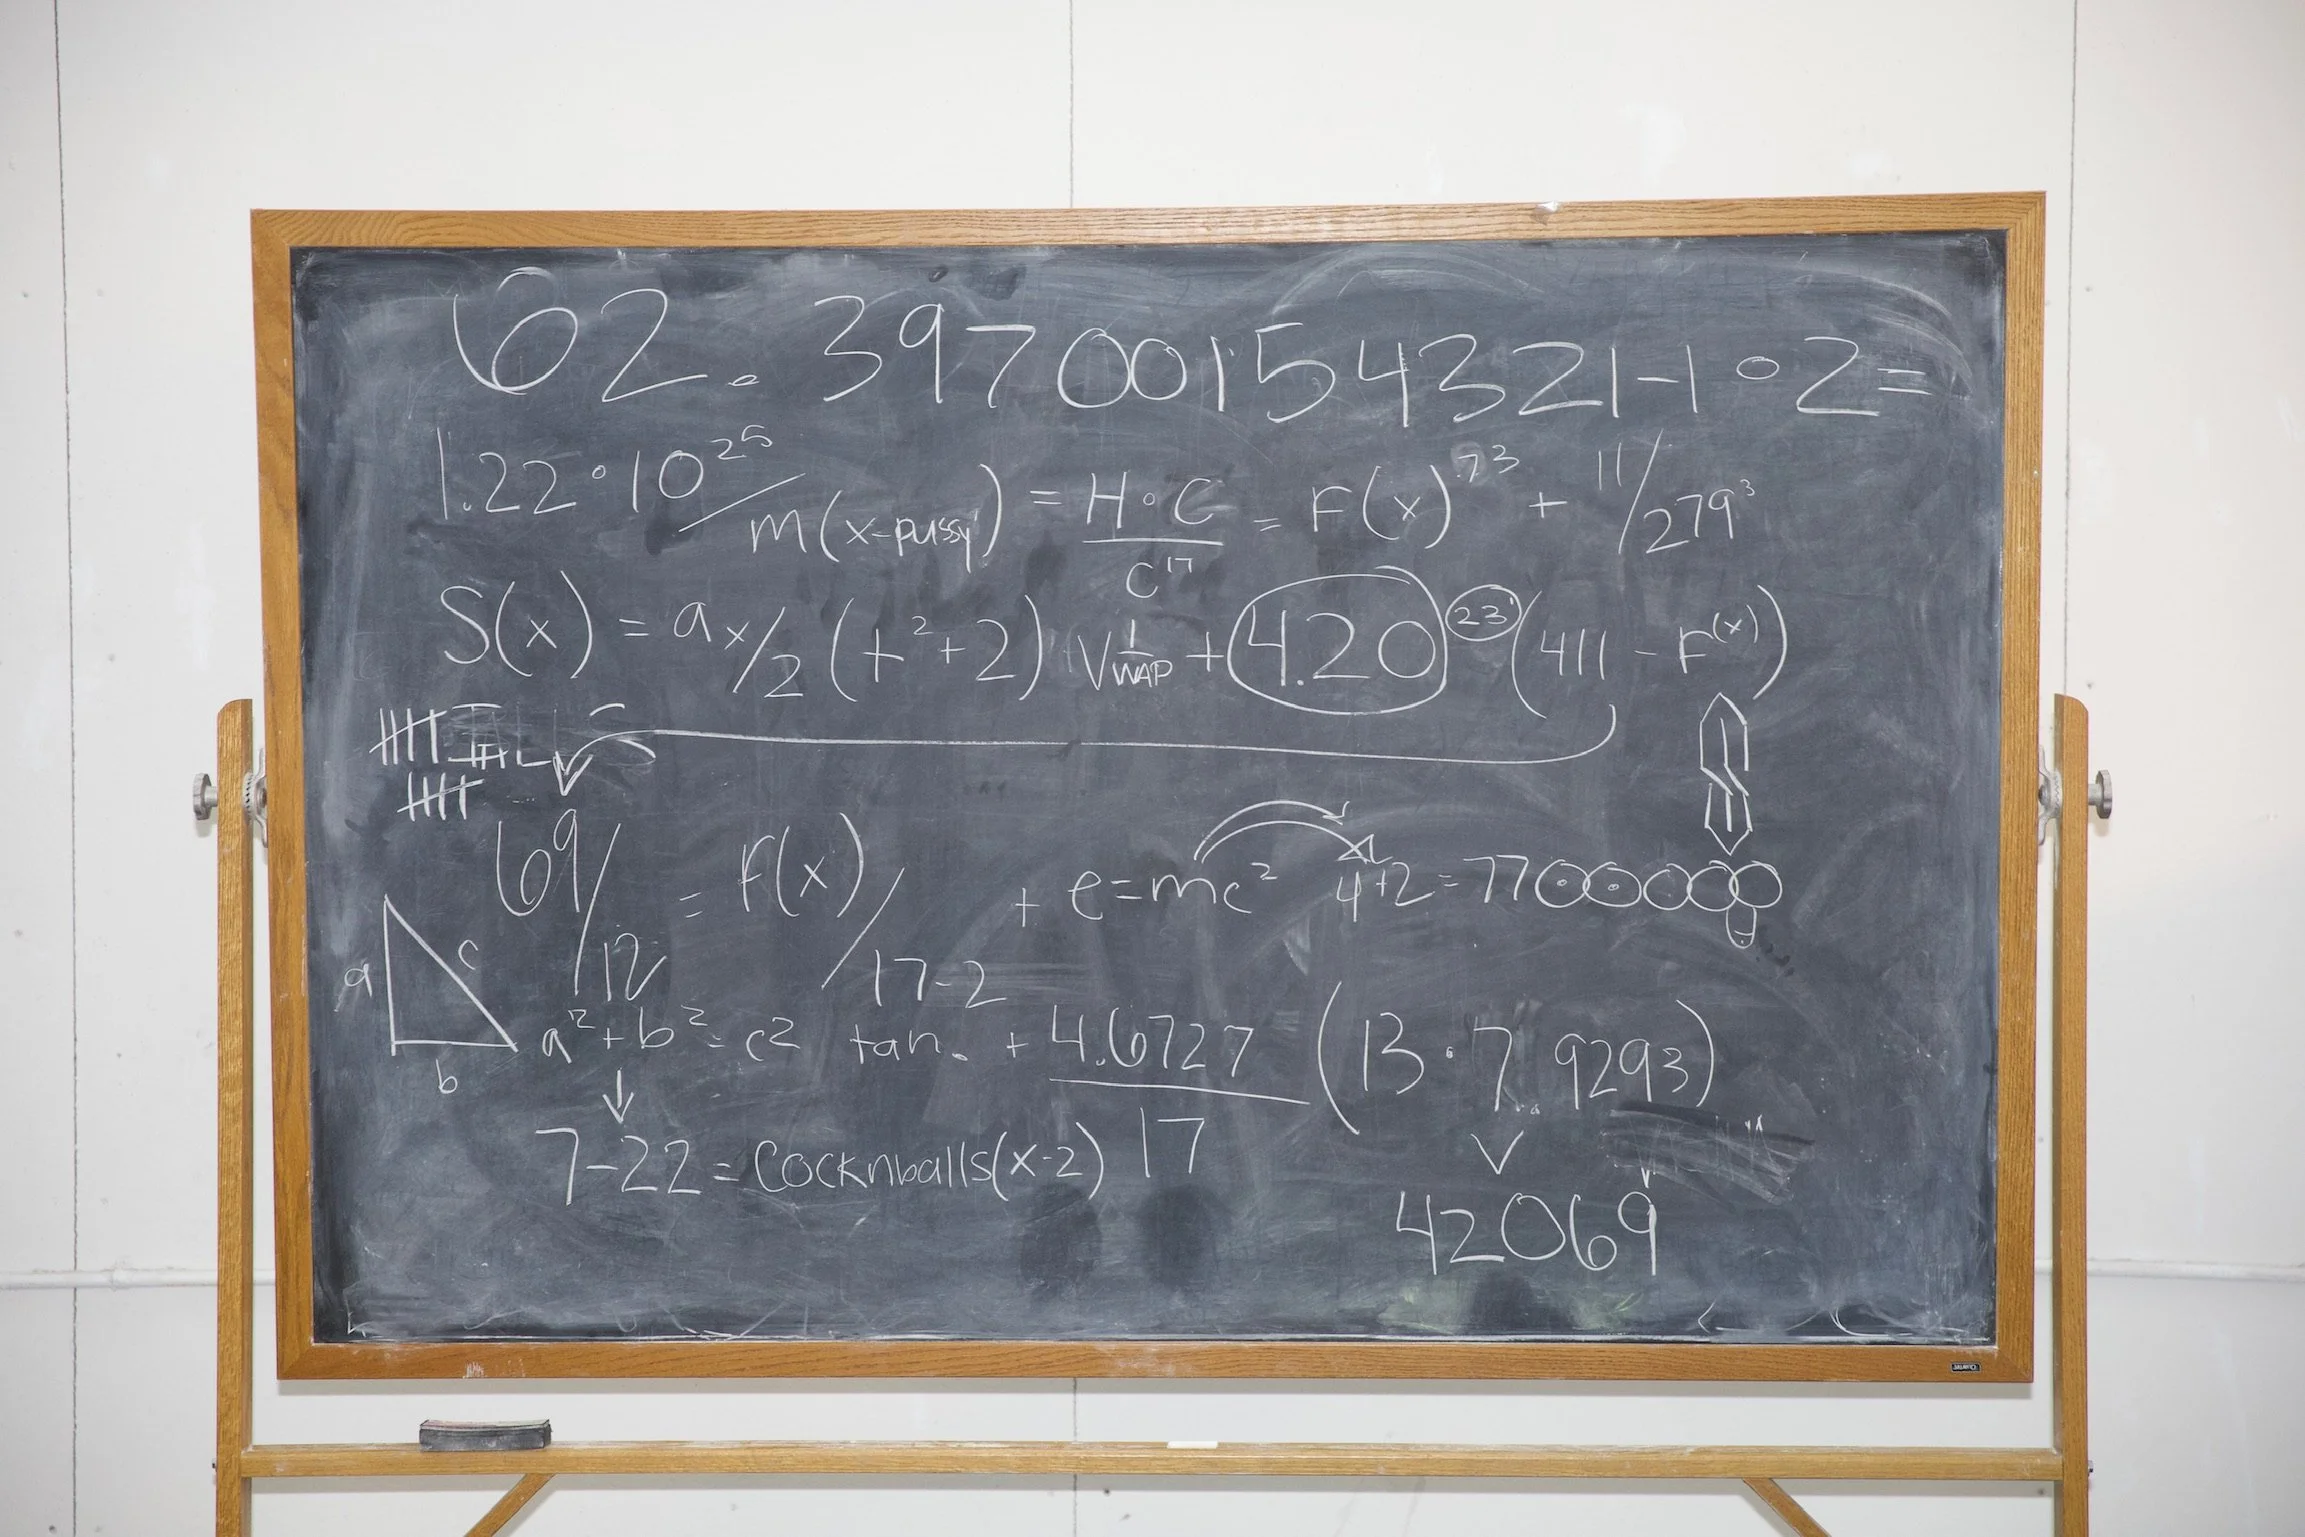 62.39700154321-1∘2=
1.22∘10²⁵/m(x-pussy) = H∘C/C¹⁷ = F(x)^.73 + 11/279³
S(x) = ax/2 (t²+2) √1/WAP + 4.20^23 (411 - F(x))
69/12 = f(x)/17-2 + e=mc² 4+2=7700000
a
c
b
a²+b²=c² tan. + 4.6727/17 (13·7.9293)
7-22=Cocknballs(x-2)
42069